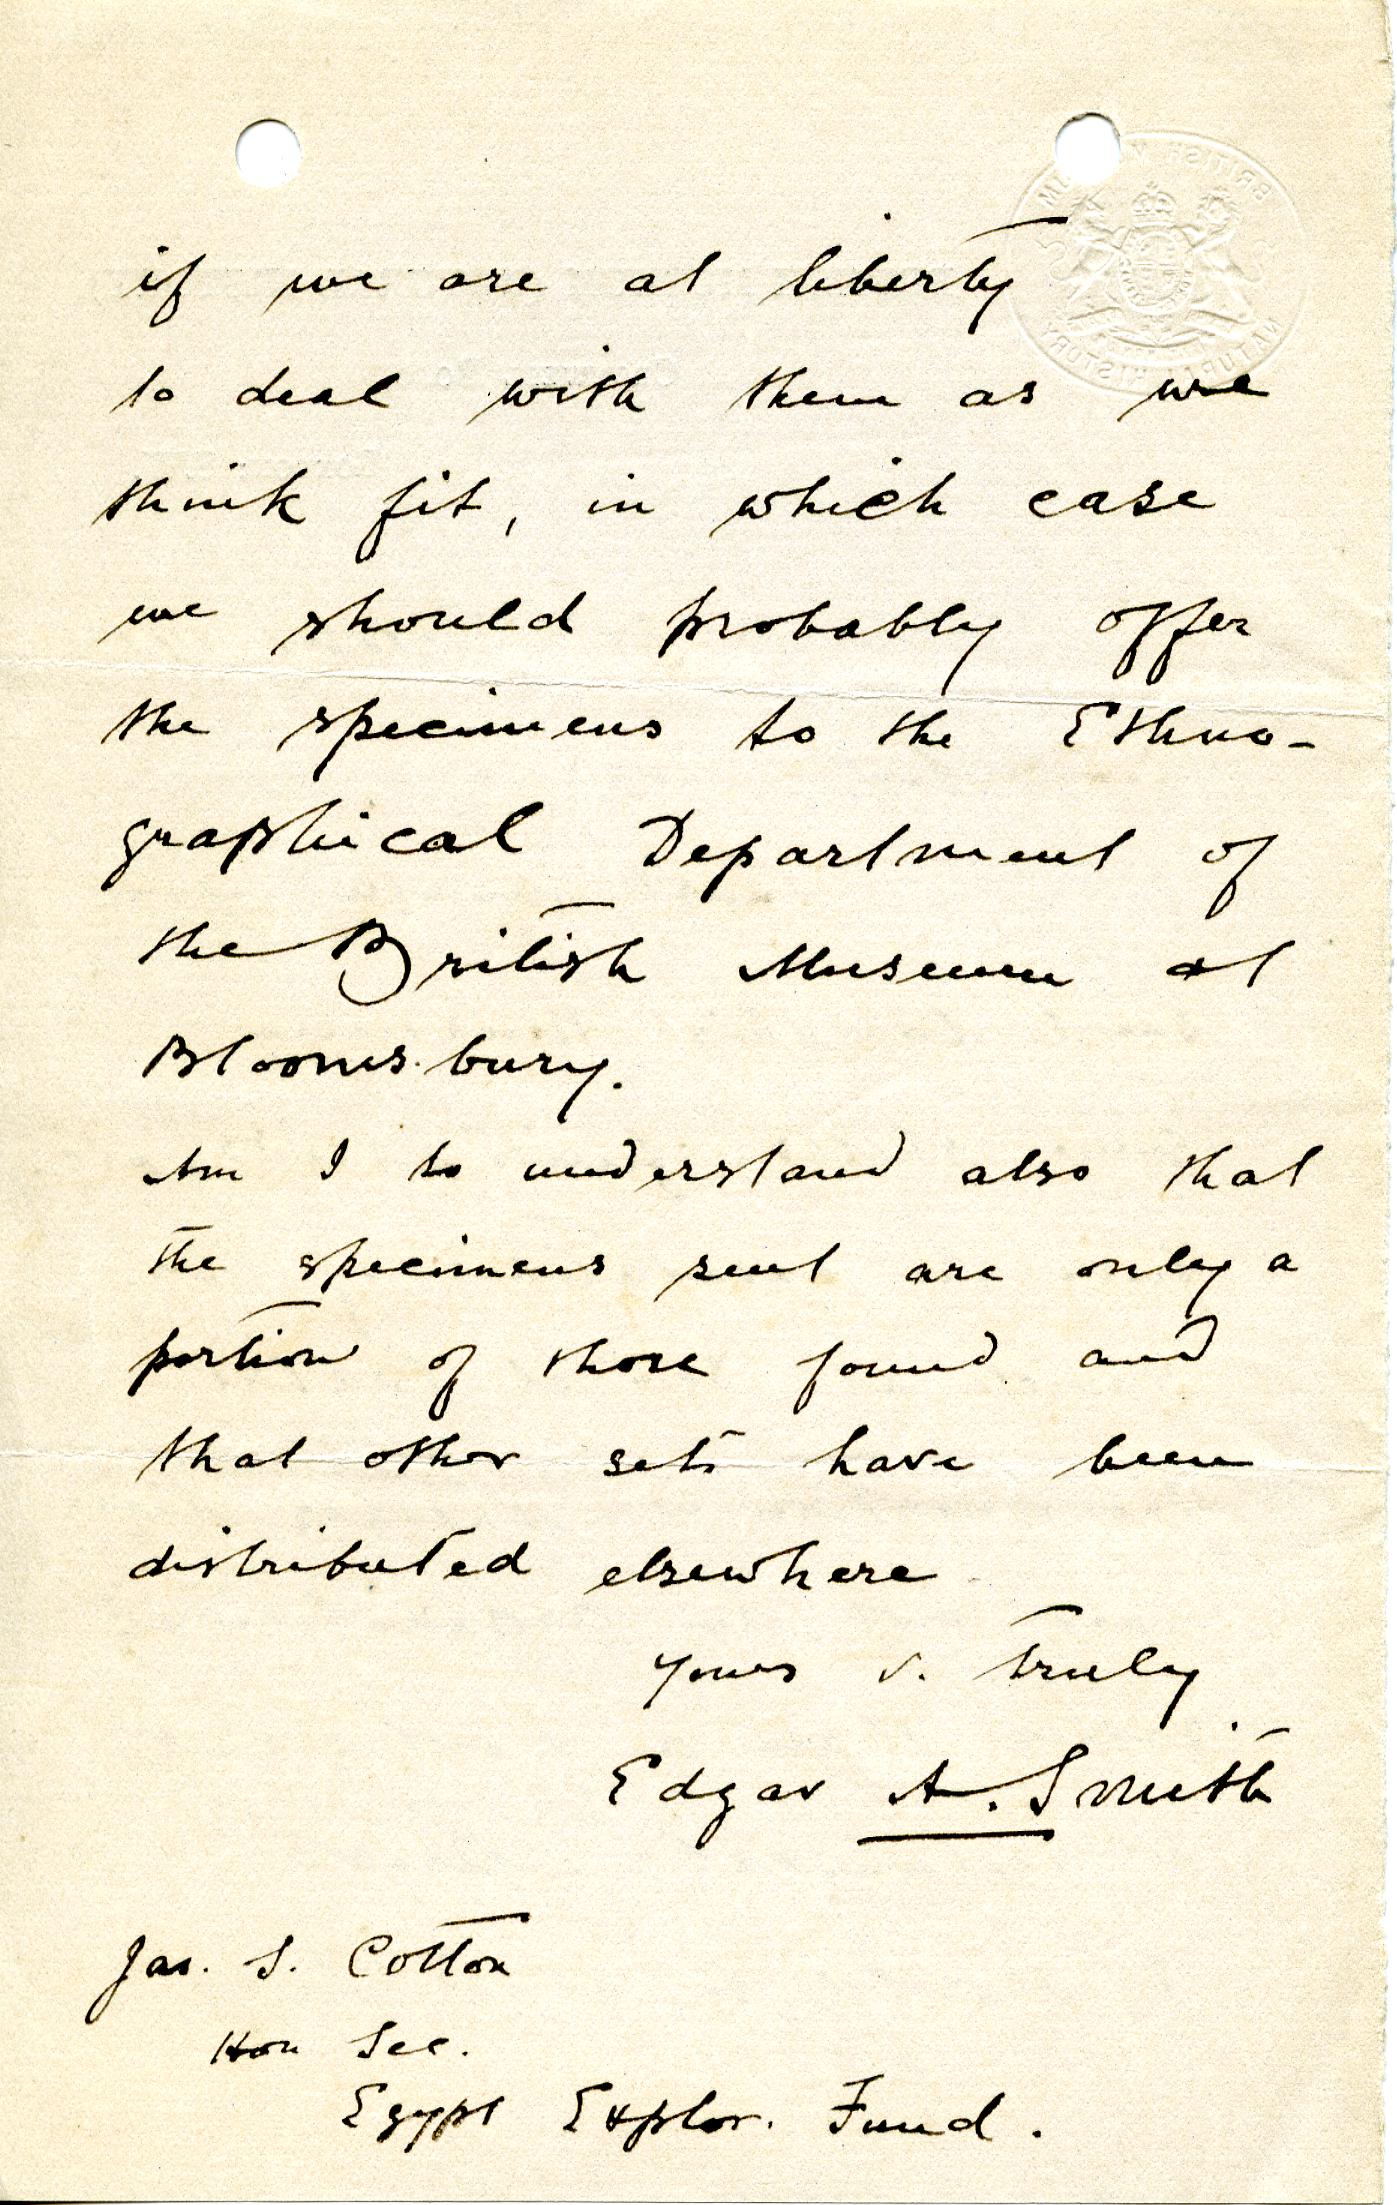 BRITISH MUSEUM
NATURAL HISTORY
if we are at liberty
to deal with them as we
think fit, in which case
we should probably offer
the specimens to the Ethno-
graphical Department of
the British Museum at
Bloomsbury.
Am I to understand also that
the specimens sent are only a
portion of those found and
that other sets have been
distributed elsewhere
Yours v. truly
Edgar A. Smith
Jas. S. Cotton
Hon Sec.
Egypt Explor. Fund.